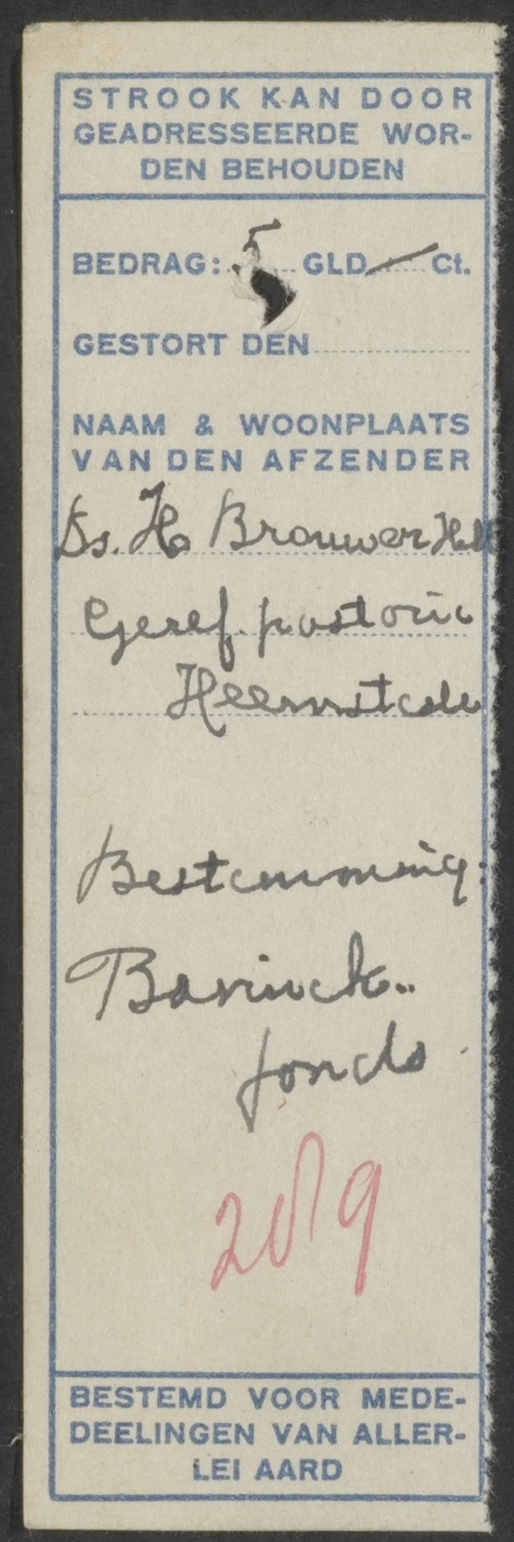 STROOK KAN DOOR
GEADRESSEERDE WOR-
DEN BEHOUDEN
BEDRAG: 5 GLD — Ct.
GESTORT DEN
NAAM & WOONPLAATS
VAN DEN AFZENDER
Ds. H. Brouwer
Geref. pastorie
Heemstede
Bestemming:
Bavinck-
fonds
BESTEMD VOOR MEDE-
DEELINGEN VAN ALLER-
LEI AARD